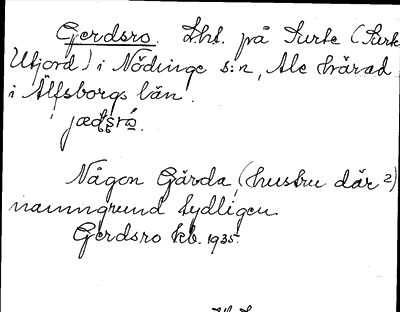 Gerdsro. Lht. på Surte (Surte
Utjord) i Nödinge s:n, Ale härad
i Älfsborgs län.
Någon Gärda (hustru där?)
namngrund tydligen
Gerdsro kb. 1935.